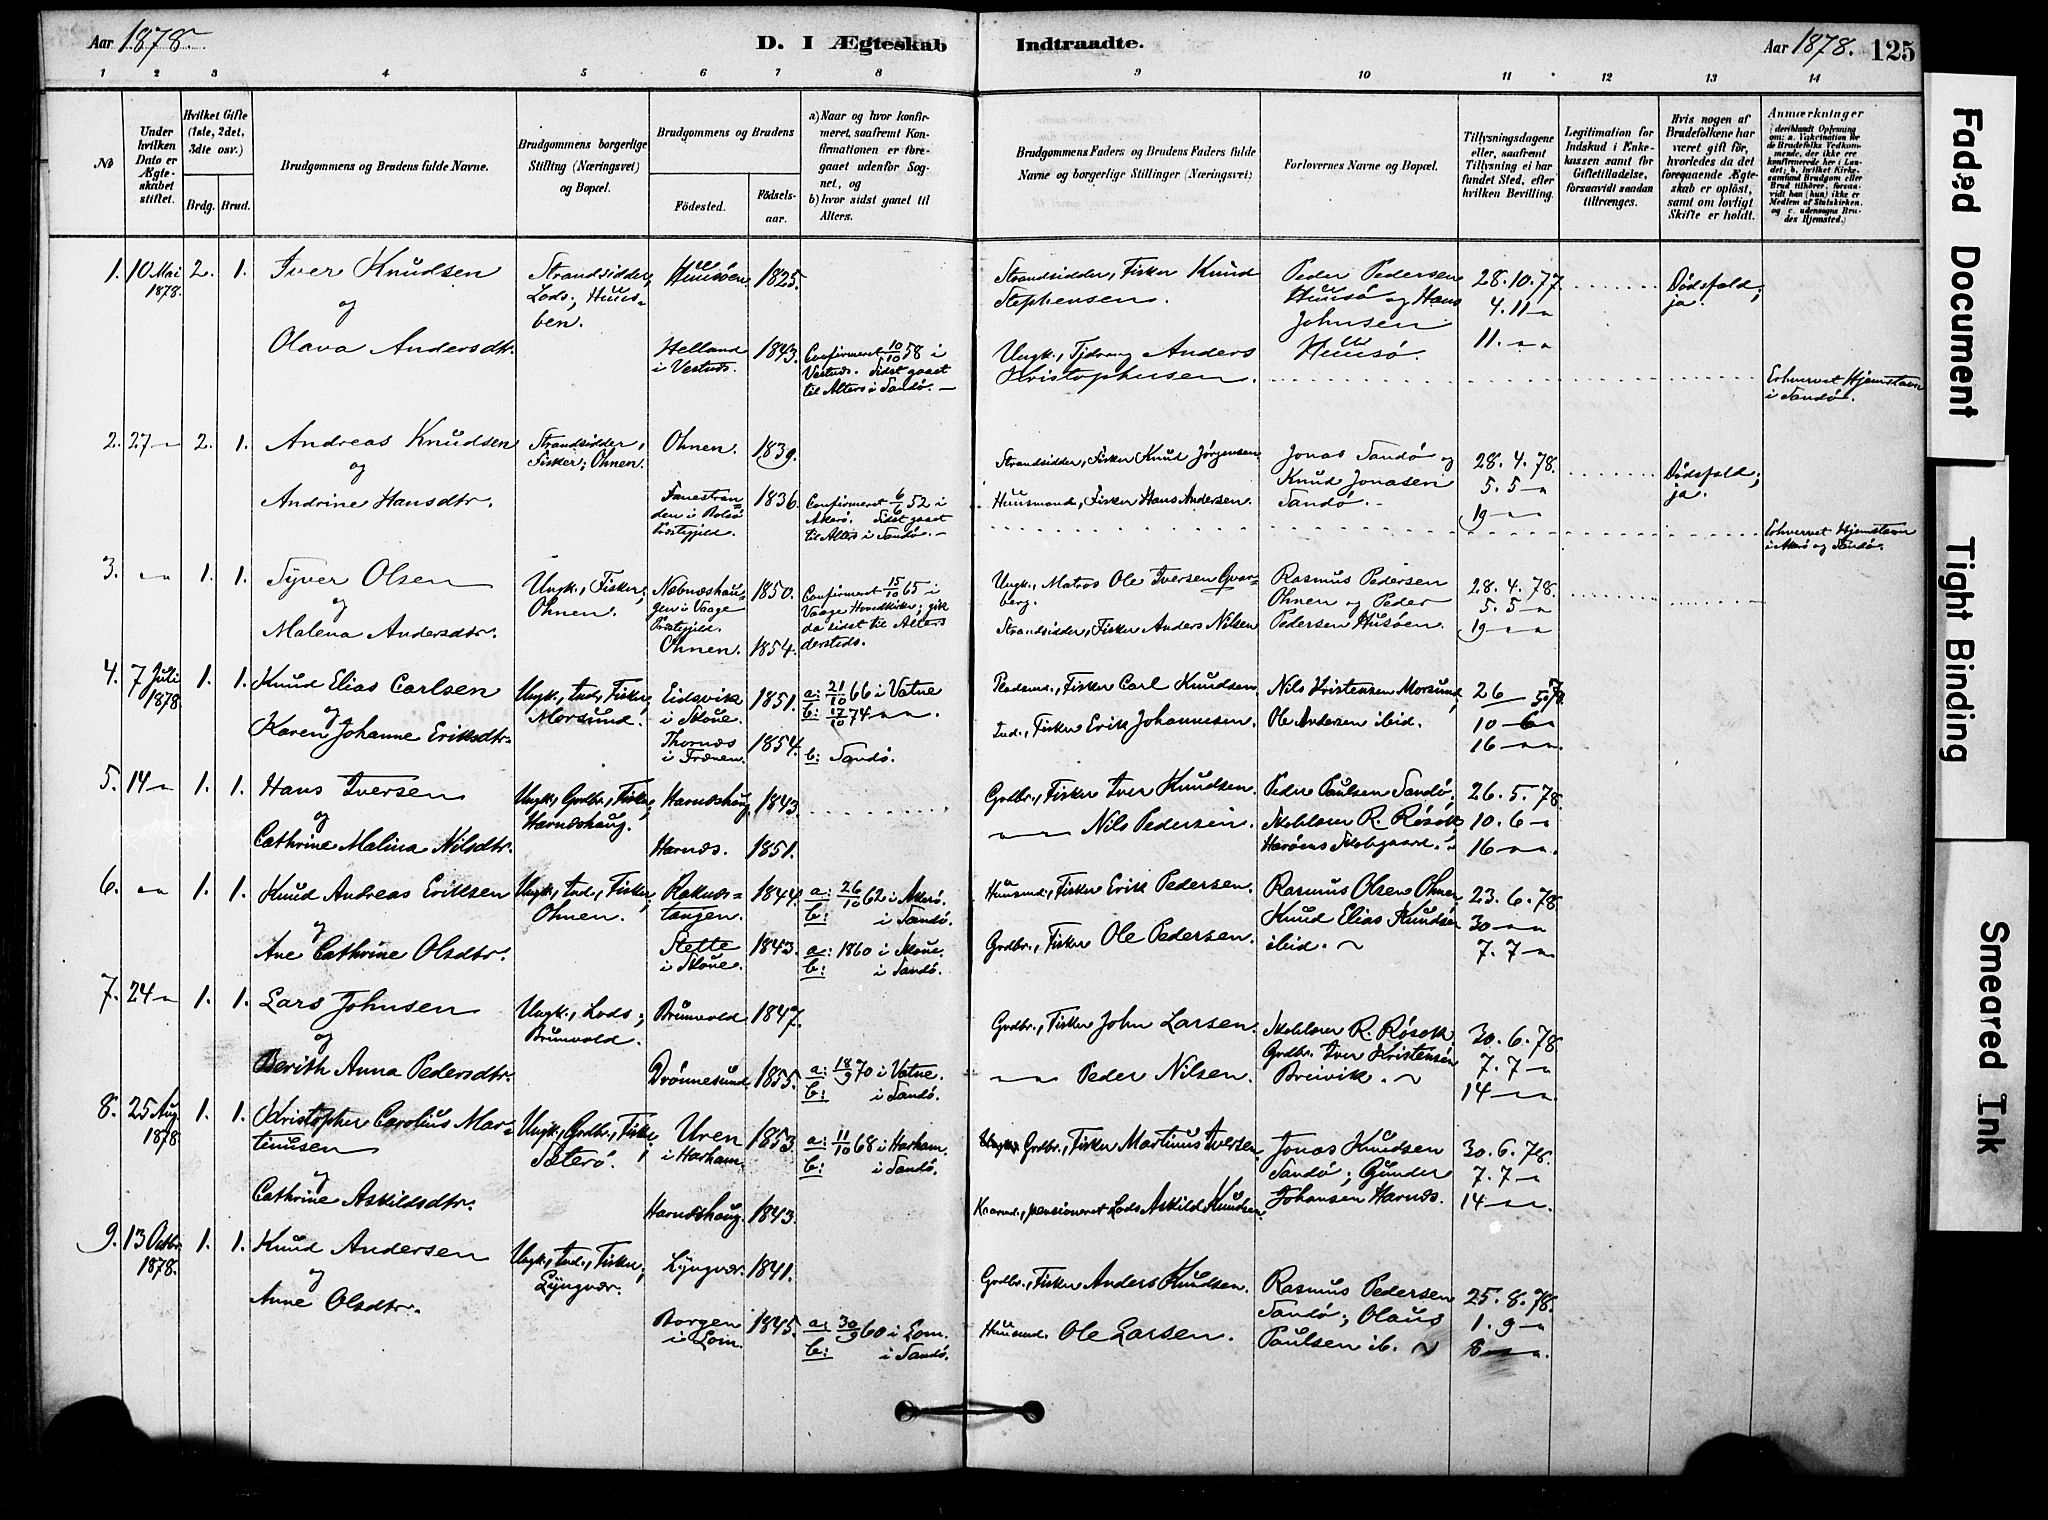 Aar 1878.
D. I Ægteskab
Indtraadte.
Aar 1878.
125
1 2 3 4 5 6 7 8 9 10 11 12 13 14
No
Under hvilken Dato er Ægteskabet stiftet.
Hvilket Gifte (1ste, 2det, 3die osv.)
Brdg. Brud.
Brudgommens og Brudens fulde Navne.
Brudgommens borgerlige Stilling (Næringsvei) og Bopæl.
Brudgommens og Brudens
Fødested.
Fødselsaar.
a) Naar og hvor konfirmeret, saafremt Konfirmationen er foregaaet udenfor Sognet, og
b) hvor sidst gaaet til Alters.
Brudgommens Faders og Brudens Faders fulde Navne og borgerlige Stillinger (Næringsvei)
Forlovernes Navne og Bopæl.
Tillysningsdagene eller, saafremt Tillysning ei har fundet Sted, efter hvilken Bevilling.
Legitimation for Indskud i Enkekassen samt for Giftetilladelse, forsaavidt saadan tiltrænges.
Hvis nogen af Brudefolkene har været gift før, hvorledes da det foregaaende Ægteskab er opløst, samt om lovligt Skifte er holdt.
Anmærkninger
(deriblandt Oplysning om: a. Vakcination for de Brudefolks Vedkommende, der ikke ere konfirmerede her i Landet; b. hvilket Kirkesamfund Brudgom eller Brud tilhører, forsaavidt han (hun) ikke er Medlem af Statskirken, og c. udensogns Brudes Hjemsted.)
1. 10 Mai 1878. 2. 1.
Iver Knudsen
og
Olava Andersdtr.
Strandsidder, Lods; Huusöen.
Huusöen 1825.
Helland i Vestnæs. 1843.
Confirmeret 10/10 58 i
Vestnæs. Sidst gaaet
til Alters i Sandö. –
Strandsidder, Fisker Knud
Stephensen.
Ungk., Anders
Kristophersen.
Peder Pedersen
Huusö og Hans
Johnsen
Huusö.
28. 10. 77
4. 11 –"–
11. –"–
Dødsfald;
ja.
Erhvervet Hjemstavn
i Sandö.
2. 27 –"– 2. 1.
Andreas Knudsen
og
Andrine Hansdtr.
Strandsidder,
Fisker; Ohnen.
Ohnen. 1839.
Fanestranden i Bolsö Præstegjeld. 1836.
Confirmeret 6/6 52 i
Akerö. Sidst gaaet
til Alters i Sandö. –
Strandsidder, Fisker Knud Jörgensen
Huusmand, Fisker Hans Andersen.
Jonas Sandö og
Knud Jonasen
Sandö.
28. 4. 78.
5. 5 –"–
19 –"–
Dødsfald;
ja.
Erhvervet Hjemstavn
i Akerö og Sandö.
3. –"– 1. 1.
Syver Olsen
og
Malena Andersdtr.
Ungk., Fisker;
Ohnen.
Næbnæshaugen i Vaage Præstegjeld. 1850.
Ohnen. 1854.
Confirmeret 15/10 65 i
Vaage Hovedkirke; gik
da sidst til Alters
dersteds.
Ungk., Matros Ole Iversen Qvarberg.
Strandsidder, Fisker Anders Nilsen
Rasmus Pedersen
Ohnen og Peder
Pedersen Husöen.
28. 4. 78.
5. 5 –"–
19 –"–
4. 7 Juli 1878. 1. 1.
Knud Elias Carlsen
og
Karen Johanne Eriksdtr.
Ungk., Ind., Fisker;
Morsund.
Eidsvik i Skoue. 1851.
Thornæs i Frænen. 1854.
a: 21/10 66 i Vatne
b: 17/10 74 –"–
b: Sandö.
Pladsmd., Fisker Carl Knudsen
Ind., Fisker Erik Johannesen
Nils Kristensen Morsund,
Ole Andersen ibid.
26 – 5. 78
10 – 6 –"–
16 –"–
5. 14 –"– 1. 1.
Hans Iversen
og
Cathrine Malina Nilsdtr.
Ungk., Grdbr., Fisker;
Harnæshaug.
Harnæshaug 1843.
Harnæs. 1851.
Grdbr., Fisker Iver Knudsen.
–"– Nils Pedersen.
Peder Paulsen Sandö;
Skolelærer R. Rösok
Haröens Skolegaard.
26. 5. 78.
10. 6 –"–
16 –"–
6. –"– 1. 1.
Knud Andreas Eriksen
og
Ane Cathrine Olsdtr.
Ungk., Ind., Fisker;
Ohnen.
Raknæstangen. 1844.
Stette i Skoue. 1843.
a: 26/10 62 i Akerö.
b: i Sandö.
a: 1860 i Skoue.
b: i Sandö.
Huusmd., Fisker Erik Pedersen.
Grdbr., Fisker Ole Pedersen.
Rasmus Olsen Ohnen
Knud Elias Knudsen
ibid.
23. 6. 78
30 –"–
7. 7 –"–
7. 24 –"– 1. 1.
Lars Johnsen
og
Berith Anna Pedersdtr.
Ungk., Lods;
Brunvold.
Brunvold 1847.
Drönnesund 1855.
a: 18/9 70 i Vatne.
b: i Sandö.
Grdbr., Fisker John Larsen.
–"– Peder Nilsen.
Skolelærer R. Rösok
Grdbr. Iver Kristensen
Breivik.
30. 6. 78
7. 7 –"–
14 –"–
8. 25 Aug. 1878 1. 1.
Kristopher Carolius Martinusen
og
Cathrine Askildsdtr.
Ungk., Grdbr., Fisker;
Sæterö.
Uren i Harham. 1853.
Harnæshaug. 1843.
a: 11/10 68 i Harham.
b: i Sandö.
Grdbr., Fisker Martinus Iversen
pensioneret Lods Askild Knudsen.
Jonas Knudsen
Sandö; Gunder
Johansen Harnæs.
30. 6. 78.
7. 7 –"–
14 –"–
9. 13 Octbr. 1878. 1. 1.
Knud Andersen
og
Anne Olsdtr.
Ungk., Ind., Fisker;
Lyngvær.
Lyngvær. 1841.
Borgen i Lom. 1845.
a: 30/9 60 i Lom.
b: i Sandö.
Grdbr., Fisker Anders Knudsen.
Huusmd. Ole Larsen.
Rasmus Pedersen
Sandö; Olaus
Paulsen ib.
25. 8. 78.
1. 9 –"–
8 –"–
Faded Document
Tight Binding
Smeared Ink